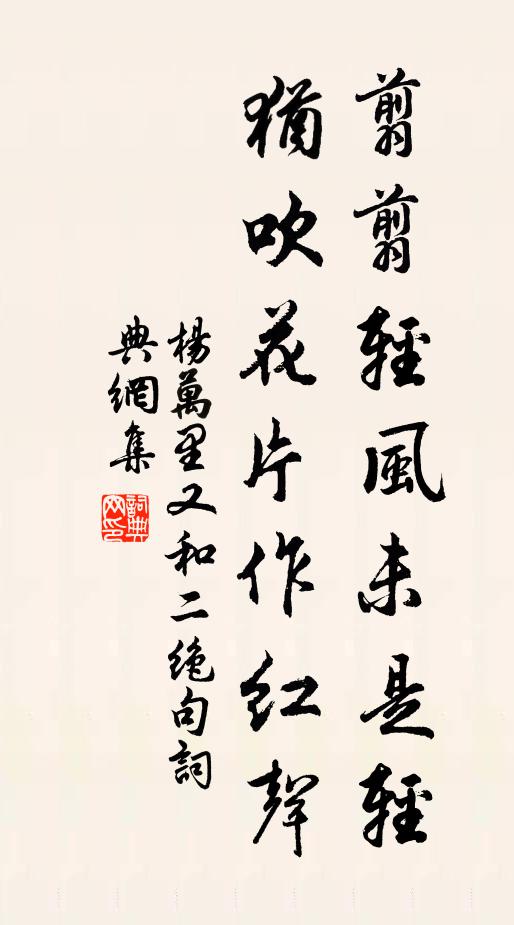 翦翦輕風未是輕
猶吹花片作紅聲
楊萬里又和二絕句詞
典網集
詞典
网印